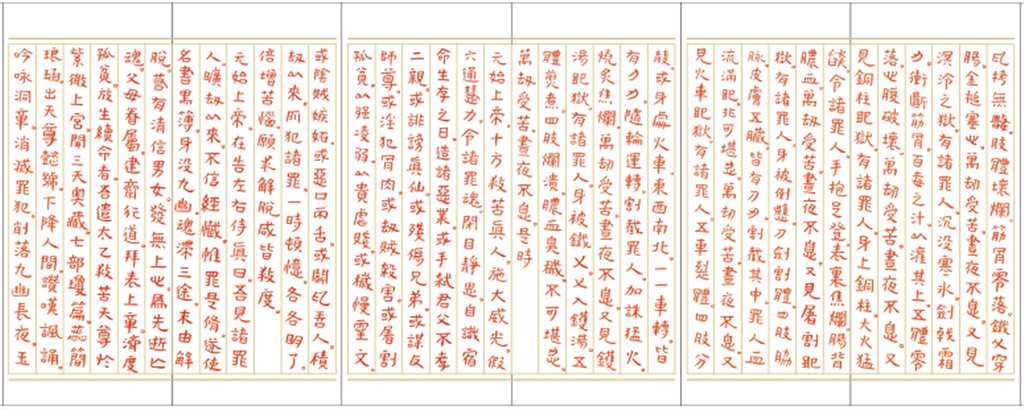 拷無數。肢體壞爛。筋骨零落。鐵叉穿
腸。金鎚塞心。萬劫受苦。晝夜不息。又見
溟泠之獄。有諸罪人。沉沒寒冰。劍戟霜
刃。衝斷筋骨。百毒之汁。以灌其上。五體零
落。心腹破壞。萬劫受苦。晝夜不息。又
見銅柱地獄。有諸罪人。身上銅柱。大火猛
燄。令諸罪人。手抱足登。表裏焦爛。腸背
膿血。萬劫受苦。晝夜不息。又見屠割地
獄。有諸罪人。身被倒懸。刀劍割體。四肢脇
脉。皮膚五臟。皆有刀刃。割截其中。罪人血
流滿地。不可堪忍。萬劫受苦。晝夜不息。又
見火車地獄。有諸罪人。五車裂體。四肢分
散。或身處火車。東西南北。一一車轉。皆
有刀刃。隨輪運轉。割截罪人。加諸猛火。
燒炙焦爛。萬劫受苦。晝夜不息。又見鑊
湯地獄。有諸罪人。身被鐵叉。叉入鑊湯。五
體煎煮。四肢爛潰。膿血臭穢。不可堪忍。
萬劫受苦。晝夜不息。是時
元始上帝。十方救苦真人。施大威光。假
六通慧力。令諸罪魂。閉目靜思。自識宿
命。生存之日。造諸惡業。或手弒君父。不奉
二親。或誹謗真仙。或殘傷兄弟。或謀反
師尊。或淫犯骨肉。或劫賊殺害。或屠割
孤貧。以强淩弱。以貴虐賤。或穢慢靈文。
或陰賊嫉妬。或惡口兩舌。或鬭訟吾人。積
劫以來。所犯諸罪。一時頓憶。各各明了。
倍增苦惱。願求解脫。咸皆救度。
元始上帝。在告左右侍真曰。吾見諸罪
人。曠劫以來。不信經懺。惟罪是脩。遂使
名書黑簿。身沒九幽。魂滯三途。未由解
脫。若有清信男女。發無上心。為先逝亡
魂。父母眷屬。建齋行道。拜表上章。濟度
孤貧。放生續命者。吾遣太乙救苦天尊。於
紫微上宮。開三天奧藏。七部瓊篇。蕊簡
琅函。出天尊懿號。下降人間。讚嘆諷誦。
吟咏洞章。消滅罪犯。削落九幽長夜。玉